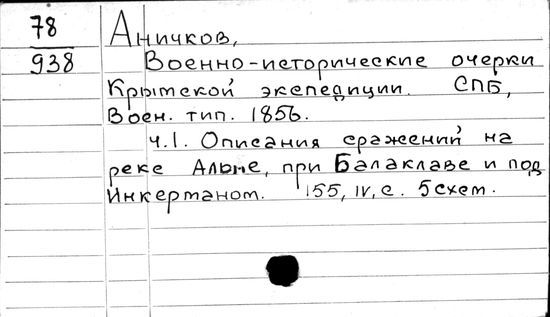 78
938
Аничков,
Военно-исторические очерки
Крымской экспедиции. СПБ,
Воен. тип. 1856.
ч.I. Описания сражений на
реке Альме, при Балаклаве и под
Инкерманом. 155, IV, с. 5 схем.